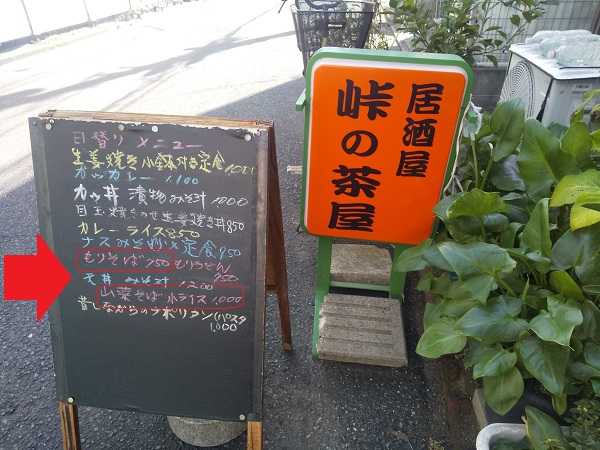 日替りメニュー
生姜焼き小鉢付き定食1,000
カツカレー 1,100
カツ丼 漬物 みそ汁 1000
目玉焼きのせ生姜焼き丼850
カレーライス850
ナスみそ炒め定食950
もりそば750 もりうどん
850
天丼 みそ汁 1200
山菜そば 小ライス 1,000
昔しながらのナポリタン(パスタ
1,000
居酒屋
峠の茶屋